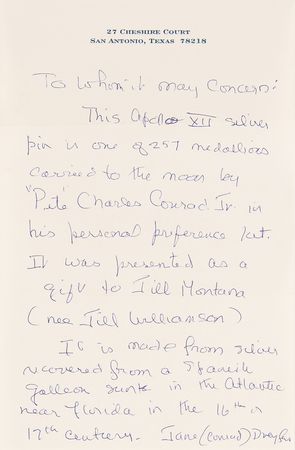 27 CHESHIRE COURT
SAN ANTONIO, TEXAS 78218
To Whom it may Concern:
This Apollo XII silver
pin is one of 257 medallions
carried to the moon by
"Pete" Charles Conrad Jr. in
his personal preference kit.
It was presented as a
gift to Jill Montana
(nee Jill Williamson)
It is made from silver
recovered from a Spanish
galleon sunk in the Atlantic
near Florida in the 16th or
17th century. Jane (Conrad) Dreyfus